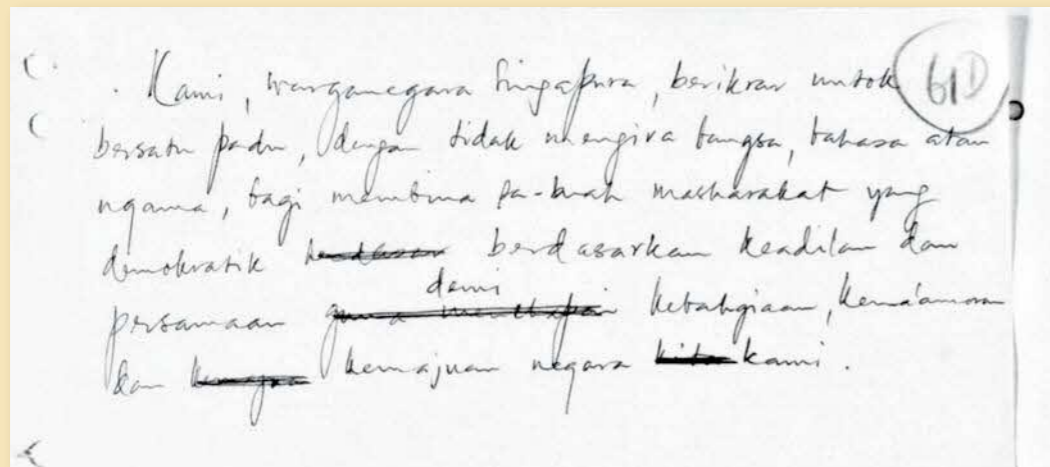 61D
Kami, warganegara Singapura, berikrar untok
bersatu padu, dengan tidak mengira bangsa, bahasa atau
ugama, bagi membina sa-buah masharakat yang
demokratik berdasar berdasarkan keadilan dan
demi
persamaan guna menchapai kebahgiaan, kema'amoran
dan kemajuan negara kita kami.